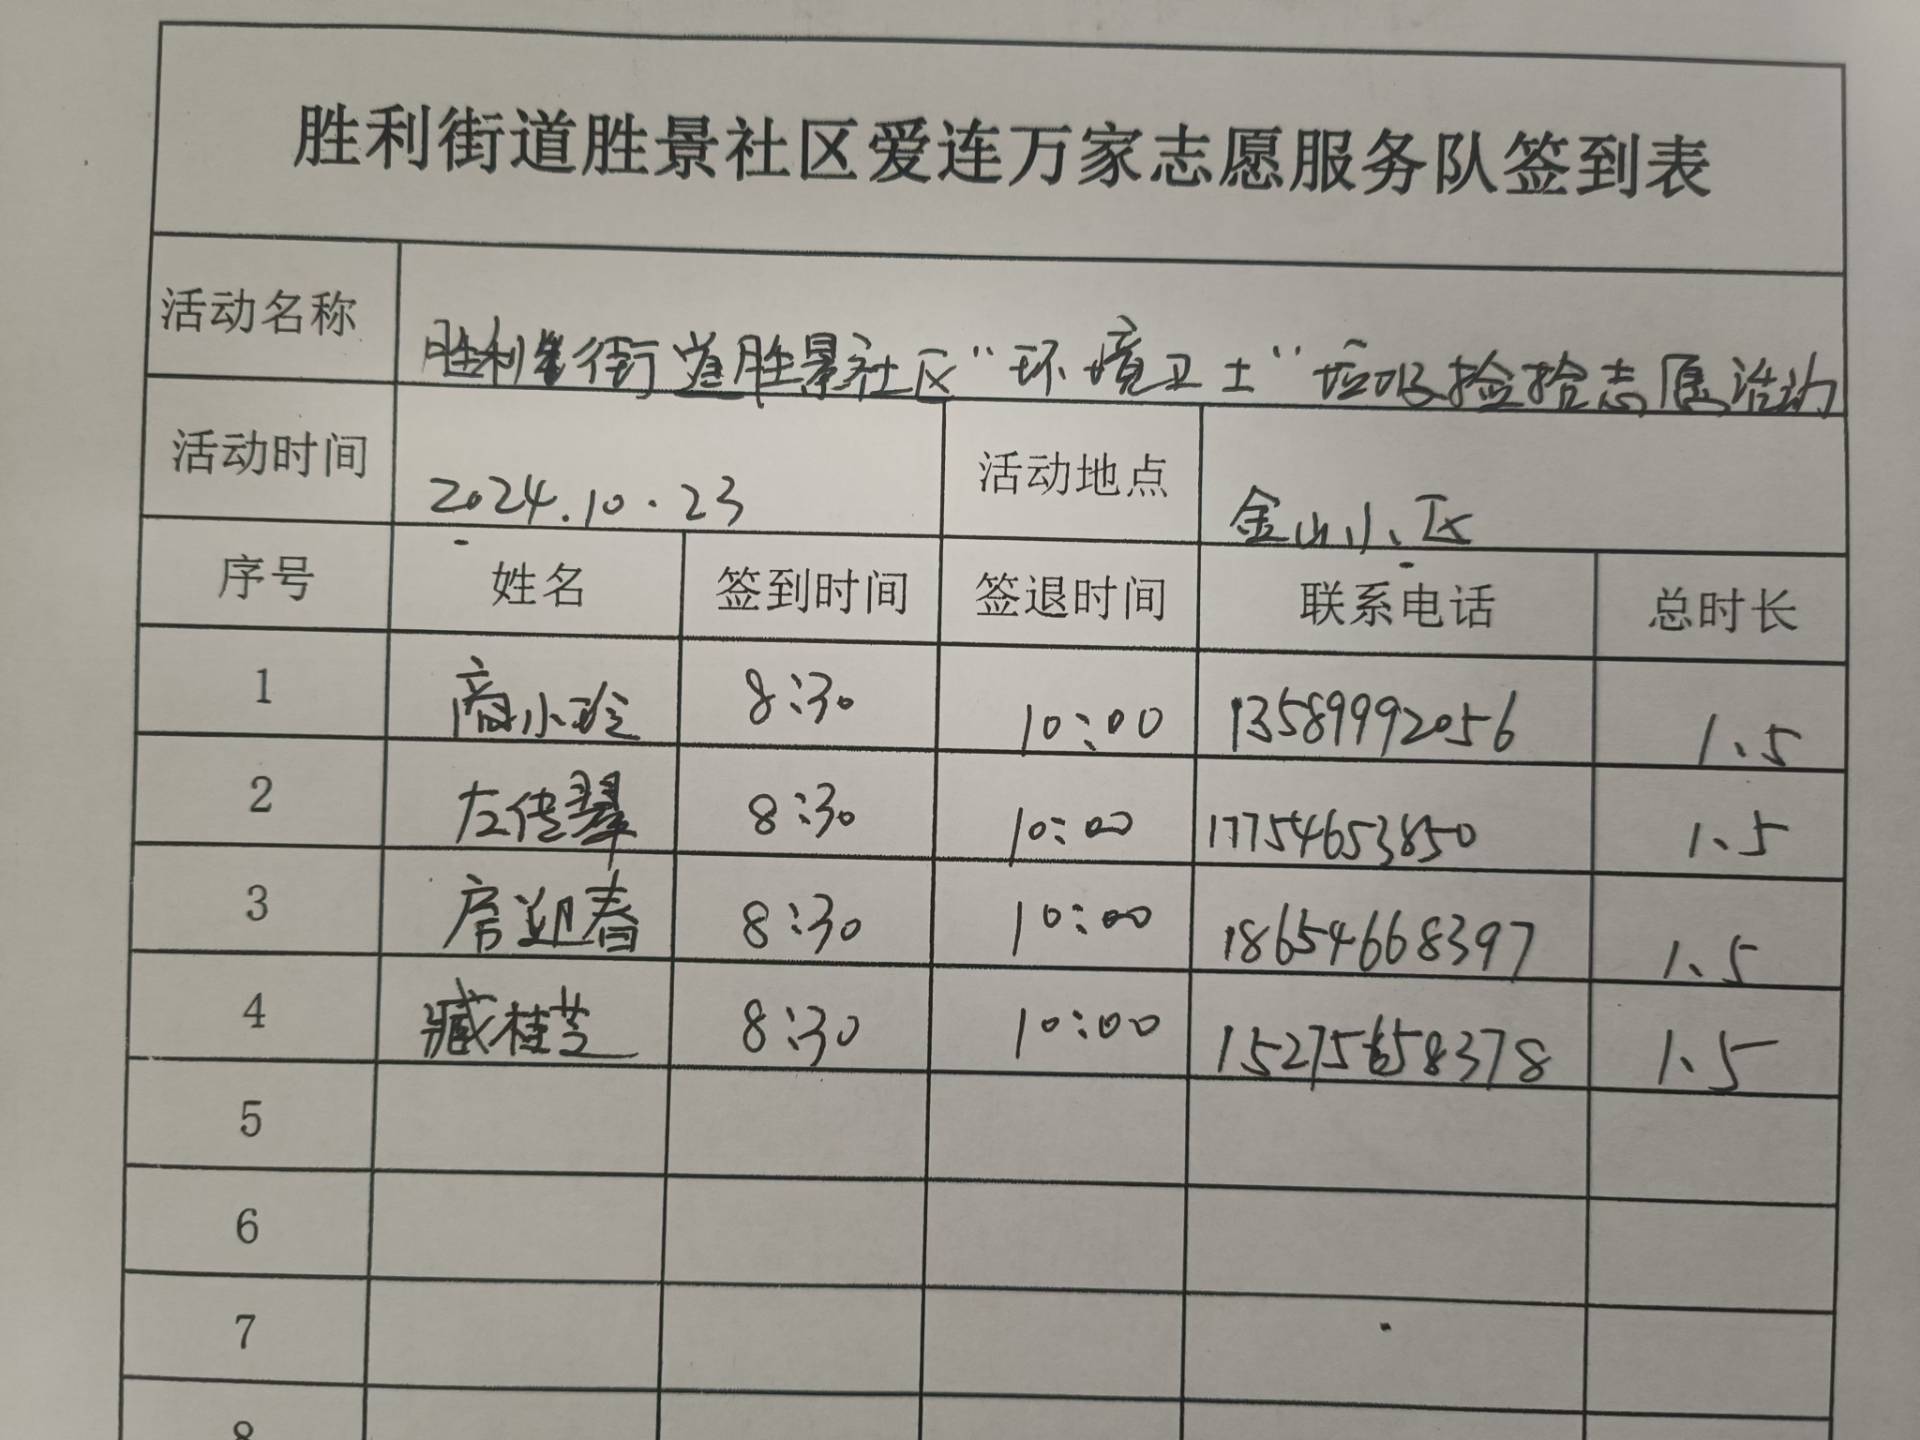 胜利街道胜景社区爱连万家志愿服务队签到表
活动名称 胜利街道胜景社区“环境卫士”垃圾捡拾志愿活动
活动时间 2024.10.23 活动地点 金山小区
序号 姓名 签到时间 签退时间 联系电话 总时长
1 商小玲 8:30 10:00 13589992056 1.5
2 左传翠 8:30 10:00 17754653850 1.5
3 房迎春 8:30 10:00 18654668397 1.5
4 臧桂芝 8:30 10:00 1.5
5
6
7
8